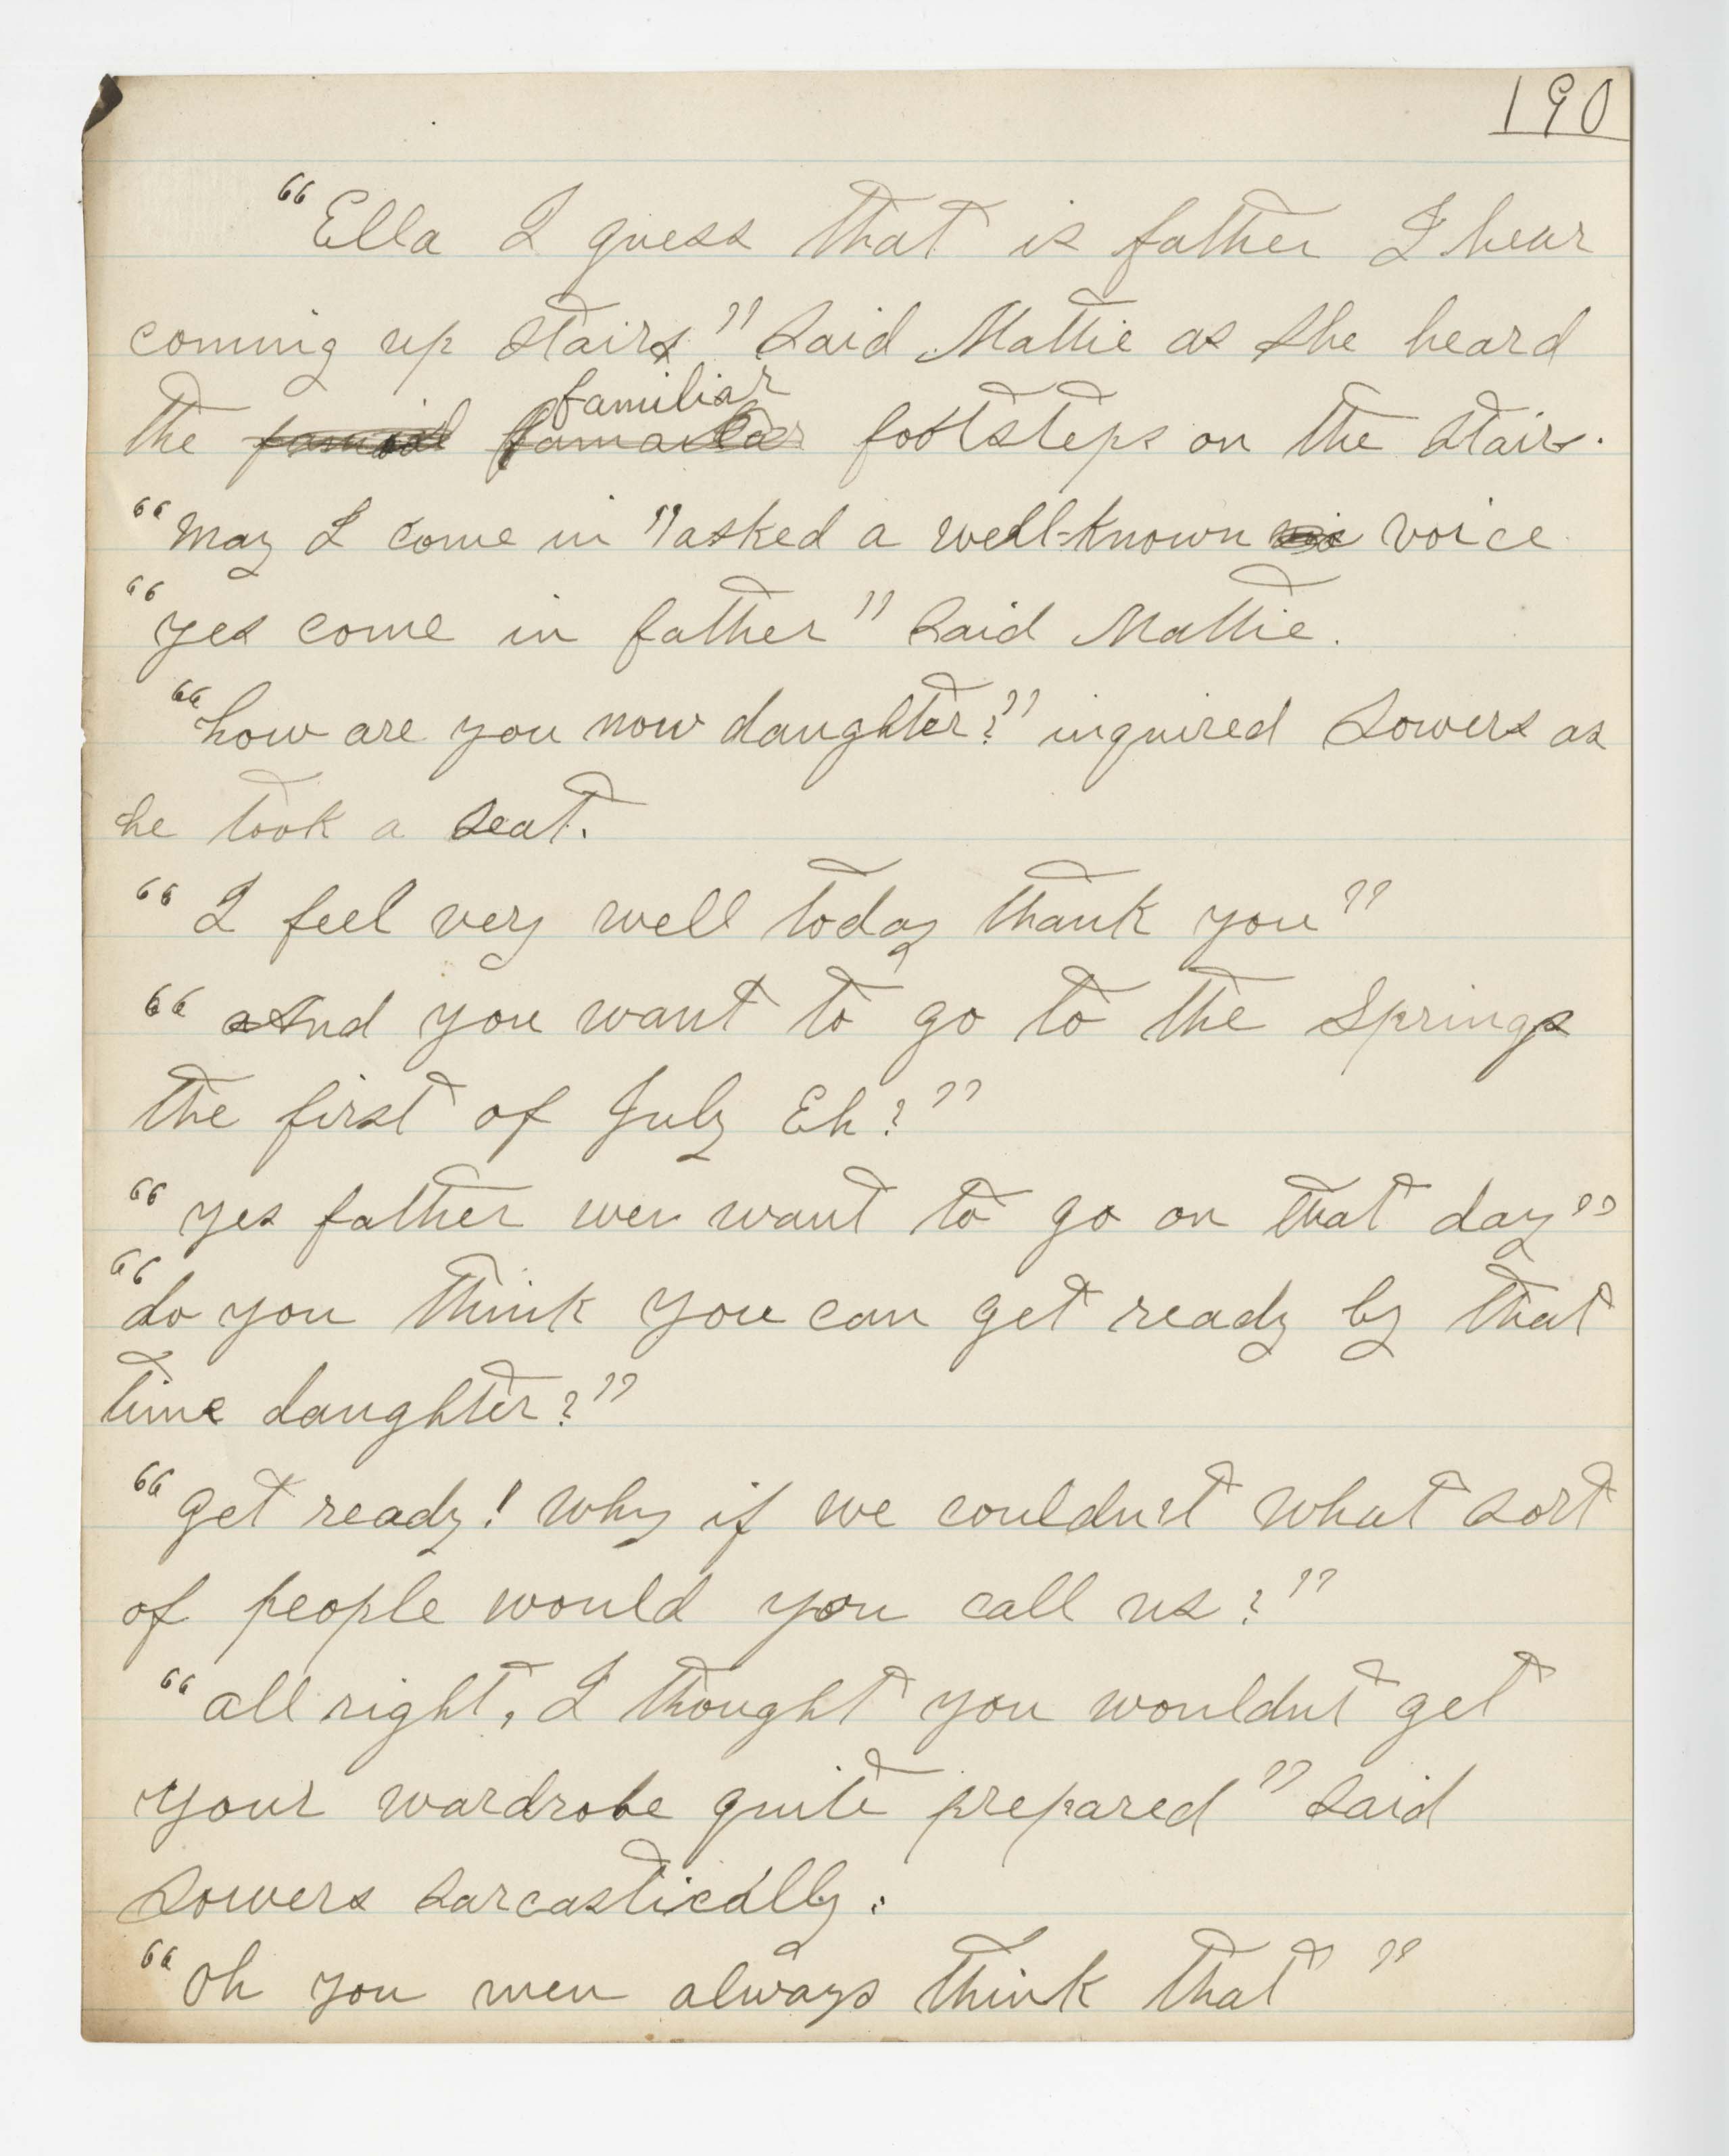 190
"Ella I guess that is father I hear
coming up stairs" said Mattie as she heard
familiar
the footsteps on the stair.
"may I come in" asked a well-known voice
"yes come in father" said Mattie.
"how are you now daughter?" inquired Sowers as
he took a seat.
"I feel very well today thank you"
"And you want to go to the Springs
the first of July Eh?"
"yes father we want to go on that day"
"do you think you can get ready by that
time daughter?"
"get ready! why if we couldn't what sort
of people would you call us?"
"all right, I thought you wouldnt get
your wardrobe quite prepared" said
Sowers sarcastically.
"Oh you men always think that"